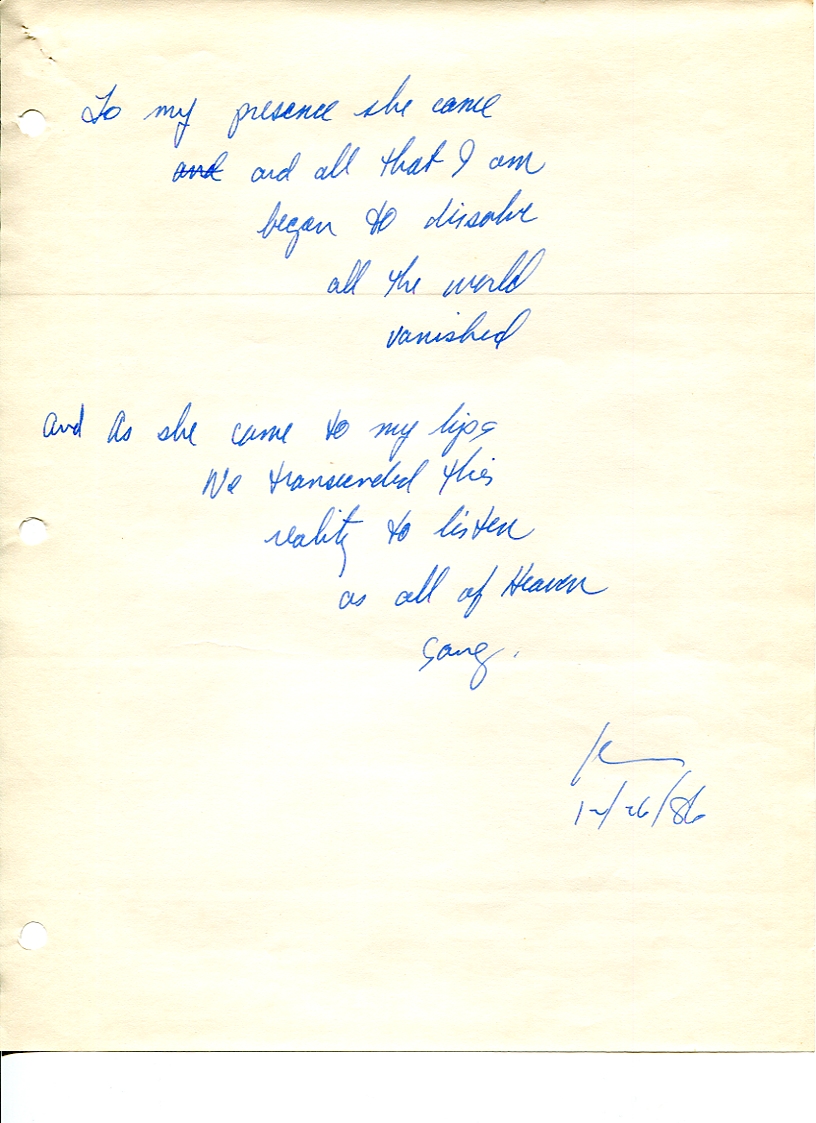 To my presence she came
and and all that I am
began to dissolve
all the world
vanished
and As she came to my lips
We transcended this
reality to listen
as all of Heaven
sang.
12/26/86